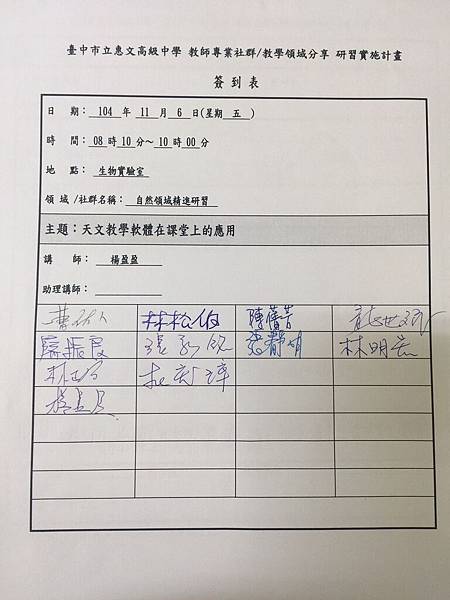 臺中市立惠文高級中學 教師專業社群/教學領域分享 研習實施計畫
簽 到 表
日 期： 104 年 11 月 6 日(星期 五 )
時 間：08 時 10 分～ 10 時 00 分
地 點： 生物實驗室
領 域 /社群名稱： 自然領域精進研習
主題：天文教學軟體在課堂上的應用
講 師： 楊盈盈
助理講師：
林松伯 陳蒨芳
廖振展 張靜明 林明宏